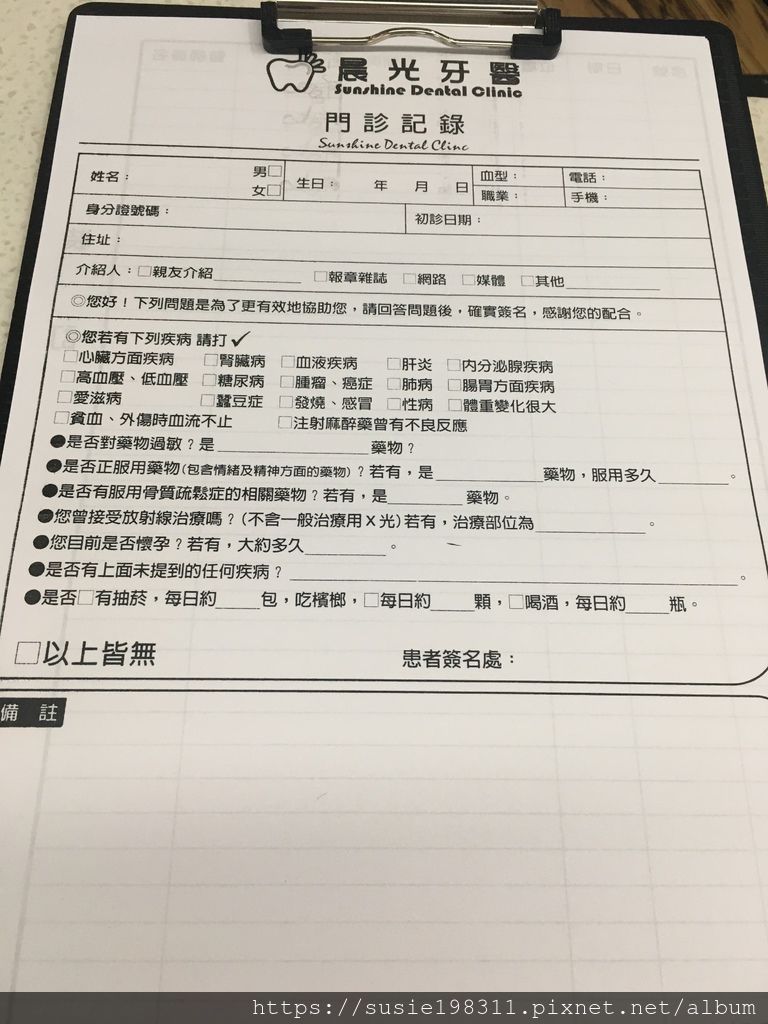 晨光牙醫
Sunshine Dental Clinic
門診記錄
Sunshine Dental Clinc
姓名： 男□ 女□ 生日： 年 月 日 血型： 電話：
職業： 手機：
身分證號碼： 初診日期：
住址：
介紹人：□親友介紹__________ □報章雜誌 □網路 □媒體 □其他__________
◎您好！下列問題是為了更有效地協助您，請回答問題後，確實簽名，感謝您的配合。
◎您若有下列疾病 請打✓
□心臟方面疾病 □腎臟病 □血液疾病 □肝炎 □內分泌腺疾病
□高血壓、低血壓 □糖尿病 □腫瘤、癌症 □肺病 □腸胃方面疾病
□愛滋病 □蠶豆症 □發燒、感冒 □性病 □體重變化很大
□貧血、外傷時血流不止 □注射麻醉藥曾有不良反應
●是否對藥物過敏？是__________藥物？
●是否正服用藥物(包含情緒及精神方面的藥物)？若有，是__________藥物，服用多久__________。
●是否有服用骨質疏鬆症的相關藥物？若有，是__________藥物。
●您曾接受放射線治療嗎？(不含一般治療用X光)若有，治療部位為__________。
●您目前是否懷孕？若有，大約多久__________。
●是否有上面未提到的任何疾病？__________。
●是否□有抽菸，每日約_____包，吃檳榔，□每日約_____顆，□喝酒，每日約_____瓶。
□以上皆無 患者簽名處：
備 註
https://susie198311.pixnet.net/album